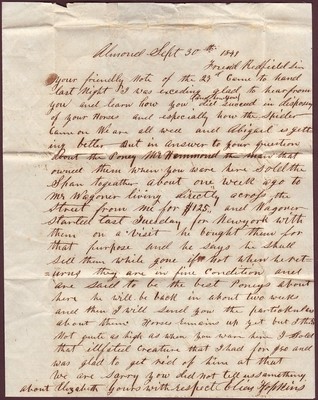 Almond Sept 30th 1848
Friend Redfield Sir
Your friendly Note of the 23d Came to hand
last Night I was exceding glad to hear from
you and learn how you did sucead in disposing
of your Horses and especially how the Spider
came on We are all well and Abigail is gett
ing better But in answer to your question
about the Poney Mr Hammond the Man that
owned them when you ware here Sold the
Span togeather about one week ago to
Mr Wagoner living directly across the
Street from me for $125, and Wagoner
Started last Tuesday for Newyork with
them on a visit he bought them for
that purpose and he says he shall
sell them while gone if not when he ret
urns they are in fine Condition and
are said to be the best Poneys about
here he will be back in about two weeks
and then I will send you the particulars
about them Horses remains up yet but I think
Not quite as high as when you ware here I Sold
that illfated Creature that I had for $60 and
was glad to get rid of him at that
We are Sorry you did not tell us something
about Elizabeth Yours with respect Elias Hopkins